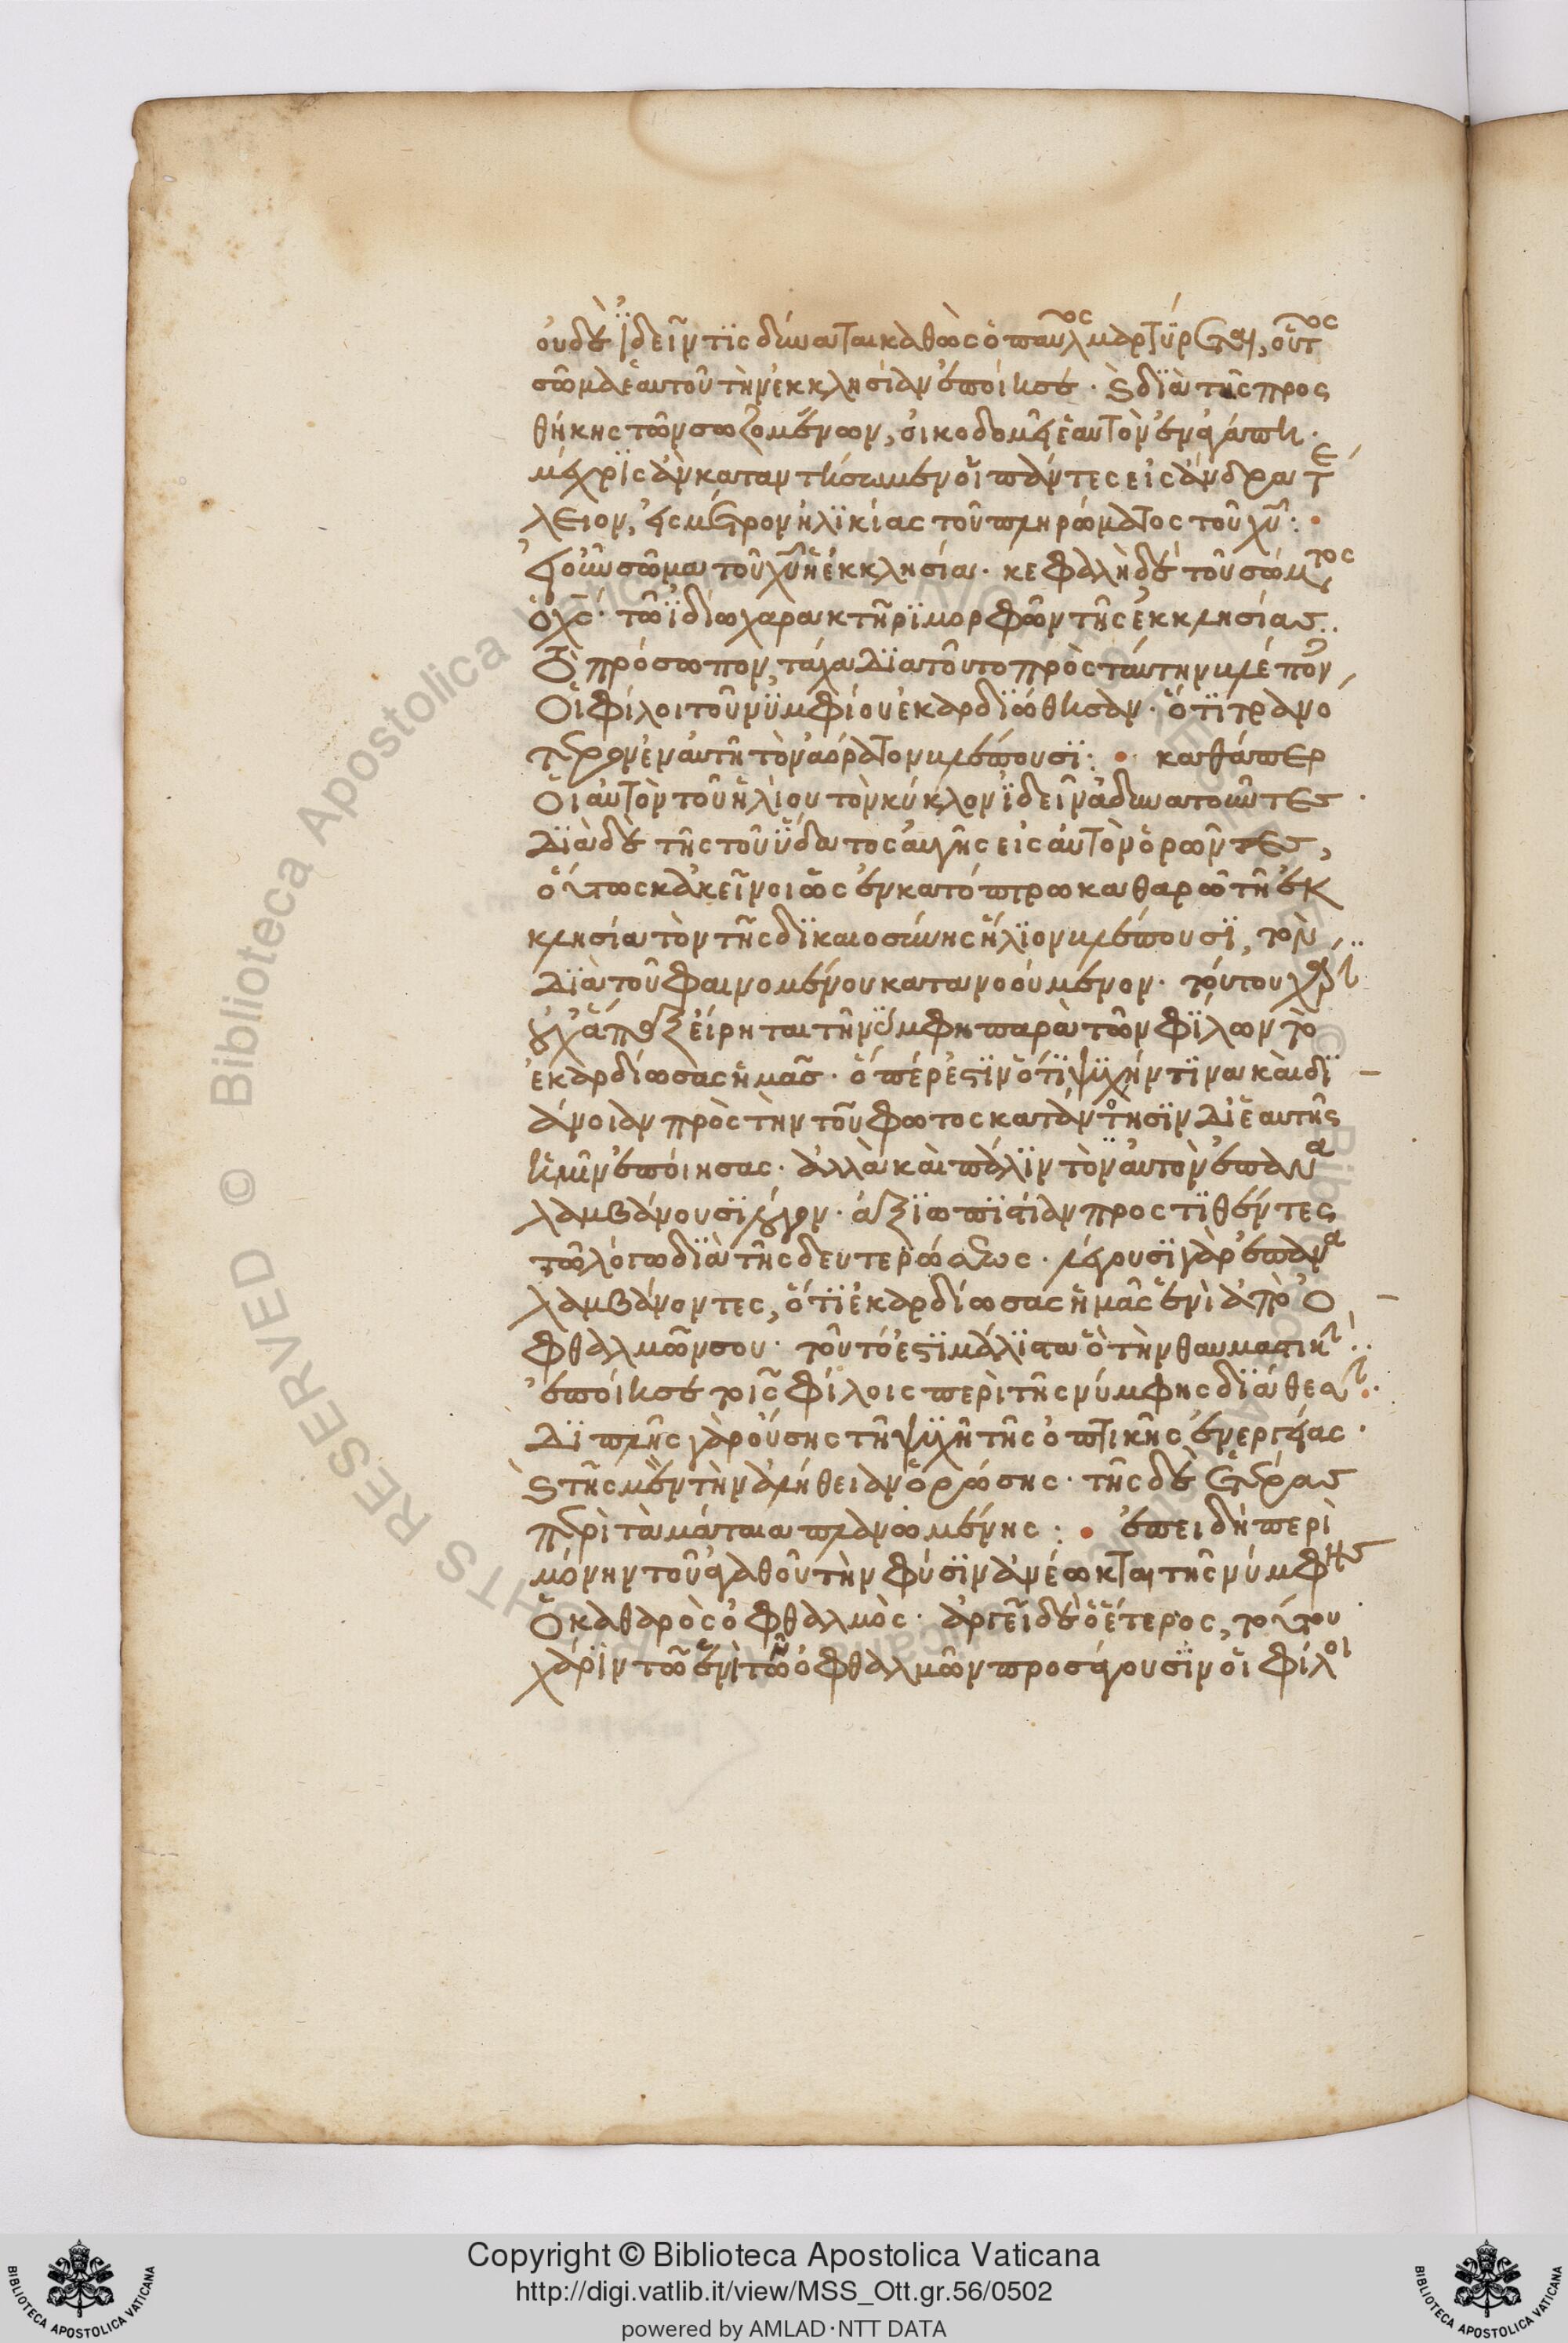 οὐδὲ ἰδεῖν τὶς δύναται καθὼς ὁ παῦλος μαρτύρεται, οὗτος
σῶμα ἑαυτοῦ τὴν ἐκκλησίαν ἐποίησε· καὶ διὰ τῆς προς
θήκης τῶν σωζομένων, οἰκοδομεῖ ἑαυτὸν ἐν ἀγάπη·
μέχρις ἂν καταντήσωμεν οἱ πάντες εἰς ἄνδρα τέ
λειον, εἰς μέτρον ἡλικίας τοῦ πληρώματος τοῦ χυ:
εἰ οὖν σῶμα τοῦ χυ ἡ ἐκκλησία· κεφαλὴ δὲ τοῦ σώματος
ὁ χς· τῶ ἰδίω χαρακτῆρι μορφῶν τῆς ἐκκλησίας
τὸ πρόσωπον, τάχα διατοῦτο πρὸς ταύτην βλέποντες
οἱ φίλοι τοῦ νυμφίου ἐκαρδιώθησαν· ὅτι τρανό
τερον ἐν αὐτῆ τὸν ἀόρατον βλέπουσι: καθάπερ
οἱ αὐτὸν τοῦ ἡλίου τὸν κύκλον ἰδεῖν ἀδυνατοῦντες·
διὰ δὲ τῆς τοῦ ὕδατος αὐγῆς εἰς αὐτὸν ὁρῶντες,
οὕτως κἀκεῖνοι ὡς ἐν κατόπτρω καθαρῶ τῆ ἐκ
κλησία τὸν τῆς δικαιοσύνης ἥλιον βλέπουσι, τὸν
διὰ τοῦ φαινομένου κατανοούμενον· τούτου χάριν
οὐχ ἅπαξ εἴρηται τῆ νύμφη παρὰ τῶν φίλων τὸ
ἐκαρδίωσας ἡμᾶς· ὅπέρ ἐστιν ὅτι ψυχήν τινα καὶ δι
άνοιαν πρὸς τὴν τοῦ φωτὸς κατανόησιν δι ἑαυτῆς
ἡμῖν ἐποίησας· ἀλλὰ καὶ πάλιν τὸν αὐτὸν ἐπανα
λαμβάνουσι λόγον· ἀξιοπιστίαν προστιθέντες
τῶ λόγω διὰ τῆς δευτερώσεως· λέγουσι γὰρ ἐπανα
λαμβάνοντες, ὅτι ἐκαρδίωσας ἡμᾶς ἐνὶ ἀπὸ ὀ
φθαλμῶν σου· τοῦτό ἐστι μάλιστα ὃ τὴν θαυμαστικὴν
ἐποίησε τοῖς φίλοις περὶ τῆς νύμφης διάθεσιν·
διπλῆς γὰρ οὔσης τῆ ψυχῆ τῆς ὀπτικῆς ἐνεργείας·
καὶ τῆς μὲν τὴν ἀλήθειαν ὁρώσης· τῆς δὲ ἑτέρας
περὶ τὰ μάταια πλανωμένης: ἐπειδὴ περὶ
μόνην τοῦ ἀγαθοῦ τὴν φύσιν ἀνέωκται τῆς νύμφης
ὁ καθαρὸς ὀφθαλμὸς· ἀργεῖ δὲ ὁ ἕτερος, τούτου
χάριν τῶ ἐνὶ τῶν ὀφθαλμῶν προσάγουσιν οἱ φίλοι
Copyright © Biblioteca Apostolica Vaticana
http://digi.vatlib.it/view/MSS_Ott.gr.56/0502
powered by AMLAD·NTT DATA